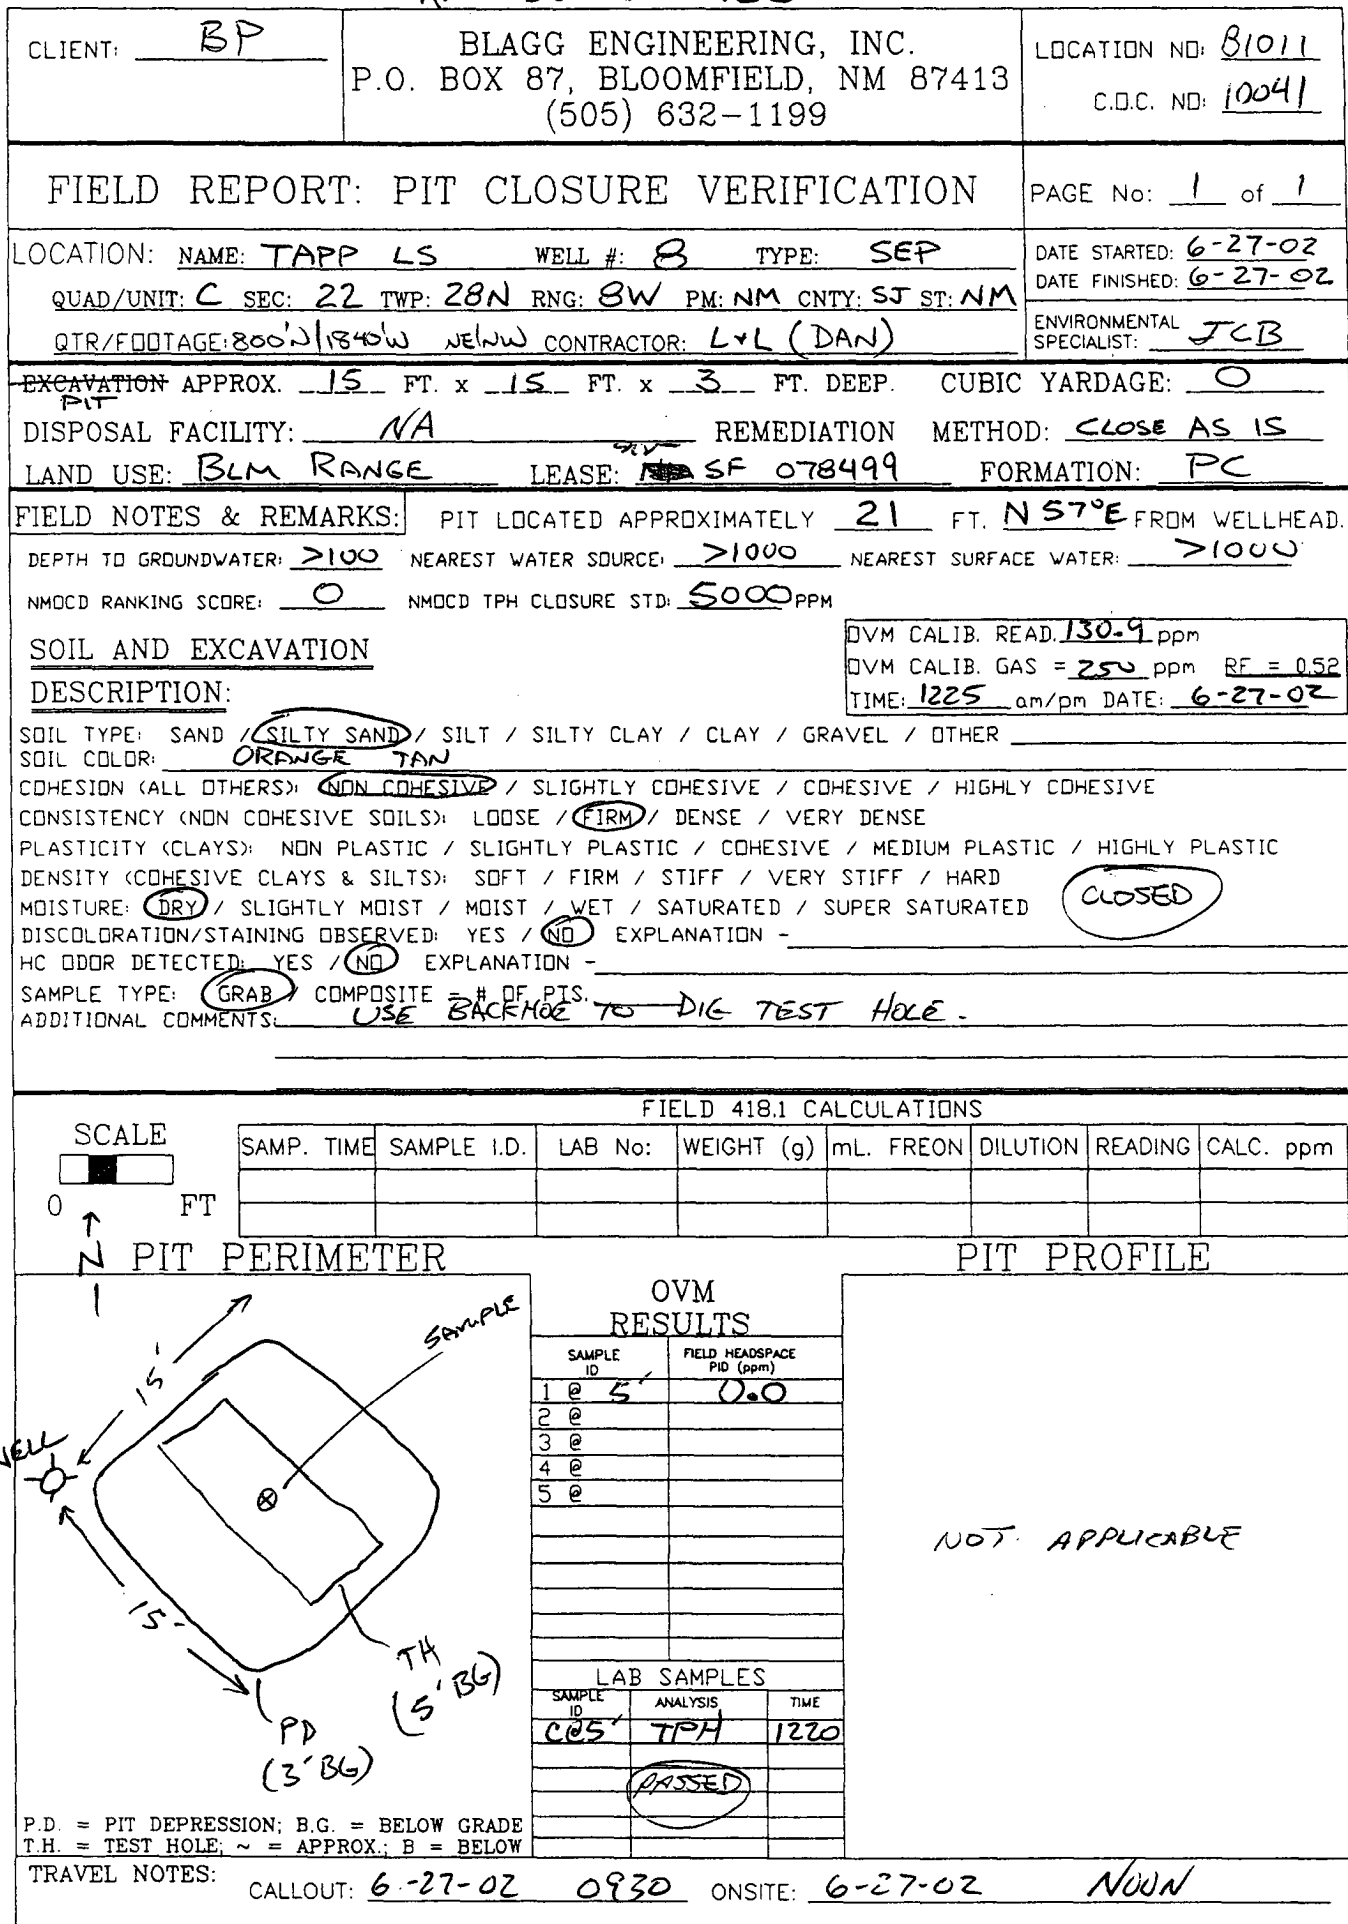 CLIENT: BP
BLAGG ENGINEERING, INC.
P.O. BOX 87, BLOOMFIELD, NM 87413
(505) 632-1199
LOCATION NO: B1011
C.O.C. NO: 10041
FIELD REPORT: PIT CLOSURE VERIFICATION
PAGE No: 1 of 1
LOCATION: NAME: TAPP LS WELL #: 8 TYPE: SEP
QUAD/UNIT: C SEC: 22 TWP: 28N RNG: 8W PM: NM CNTY: SJ ST: NM
QTR/FOOTAGE: 800'N/1840'W NE/NW CONTRACTOR: L+L (DAN)
DATE STARTED: 6-27-02
DATE FINISHED: 6-27-02
ENVIRONMENTAL
SPECIALIST: JCB
EXCAVATION APPROX. 15 FT. x 15 FT. x 3 FT. DEEP. CUBIC YARDAGE: 0
PIT
DISPOSAL FACILITY: NA REMEDIATION METHOD: CLOSE AS IS
LAND USE: BLM RANGE LEASE: SF 078499 FORMATION: PC
FIELD NOTES & REMARKS: PIT LOCATED APPROXIMATELY 21 FT. N57°E FROM WELLHEAD.
DEPTH TO GROUNDWATER: >100 NEAREST WATER SOURCE: >1000 NEAREST SURFACE WATER: >1000
NMOCD RANKING SCORE: 0 NMOCD TPH CLOSURE STD: 5000 PPM
SOIL AND EXCAVATION
DESCRIPTION:
OVM CALIB. READ. 130.9 ppm
OVM CALIB. GAS = 250 ppm RF = 0.52
TIME: 1225 am/pm DATE: 6-27-02
SOIL TYPE: SAND / SILTY SAND / SILT / SILTY CLAY / CLAY / GRAVEL / OTHER
SOIL COLOR: ORANGE TAN
COHESION (ALL OTHERS): NON COHESIVE / SLIGHTLY COHESIVE / COHESIVE / HIGHLY COHESIVE
CONSISTENCY (NON COHESIVE SOILS): LOOSE / FIRM / DENSE / VERY DENSE
PLASTICITY (CLAYS): NON PLASTIC / SLIGHTLY PLASTIC / COHESIVE / MEDIUM PLASTIC / HIGHLY PLASTIC
DENSITY (COHESIVE CLAYS & SILTS): SOFT / FIRM / STIFF / VERY STIFF / HARD
MOISTURE: DRY / SLIGHTLY MOIST / MOIST / WET / SATURATED / SUPER SATURATED
CLOSED
DISCOLORATION/STAINING OBSERVED: YES / NO EXPLANATION -
HC ODOR DETECTED: YES / NO EXPLANATION -
SAMPLE TYPE: GRAB / COMPOSITE - # OF PTS.
ADDITIONAL COMMENTS: USE BACKHOE TO DIG TEST HOLE.
FIELD 418.1 CALCULATIONS
SCALE
0 FT
SAMP. TIME SAMPLE I.D. LAB No: WEIGHT (g) mL. FREON DILUTION READING CALC. ppm
N
PIT PERIMETER
PIT PROFILE
SAMPLE
15'
WELL
15'
TH
(5' BG)
PD
(3' BG)
OVM
RESULTS
SAMPLE ID FIELD HEADSPACE PID (ppm)
1 @ 5' 0.0
2 @
3 @
4 @
5 @
LAB SAMPLES
SAMPLE ID ANALYSIS TIME
C@5' TPH 1220
PASSED
NOT APPLICABLE
P.D. = PIT DEPRESSION; B.G. = BELOW GRADE
T.H. = TEST HOLE; ~ = APPROX.; B = BELOW
TRAVEL NOTES: CALLOUT: 6-27-02 0930 ONSITE: 6-27-02 NOON